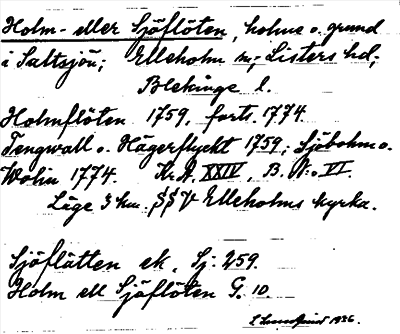 Holm- eller Sjöflöten, holme o. grund
i Saltsjön; Elleholm sn; Listers hd;
Blekinge l.
Holmflöten 1759, forts. 1774.
Tengwall o. Hägerflycht 1759; Sjöbohm o.
Wolin 1774. Kr. A. XXIV, B. N:o VI.
Läge 3 km. SSV Elleholms kyrka.
Sjöflätten ek. Sj: 259.
Holm ell Sjöflöten G. 10
1936.